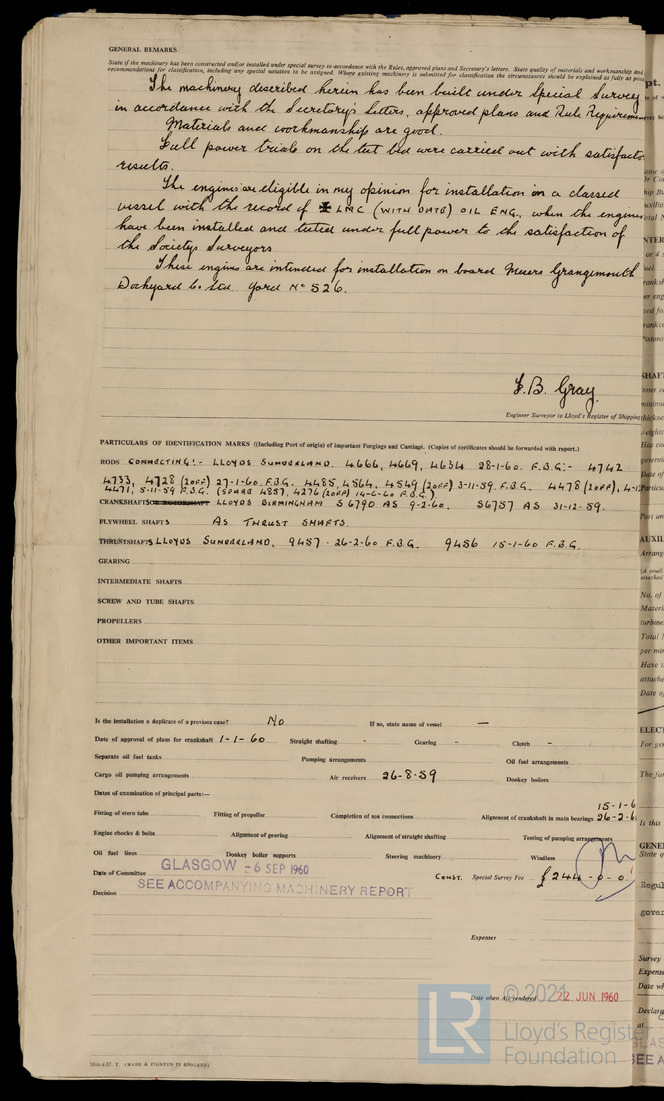 GENERAL REMARKS
State if the machinery has been constructed and/or installed under special survey in accordance with the Rules, approved plans and Secretary's letters. State quality of materials and workmanship and
recommendations for classification, including any special notation to be assigned. Where existing machinery is submitted for classification the circumstances should be explained as fully as
The machinery described herein has been built under Special Survey
in accordance with the Secretary's letters, approved plans and Rule
Materials and workmanship are good.
Full power trials on the test bed were carried out with
results.
The engines are eligible in my opinion for installation in a classed
vessel with the record of ✠ LMC (WITH DATE) OIL ENG., when the engines
have been installed and tested under full power to the satisfaction of
the Society's Surveyors
These engines are intended for installation on board Messrs Grangemouth
Dockyard Co. Ltd Yard No 526.
F.B. Gray
Engineer Surveyor to Lloyd's Register of Shipping
PARTICULARS OF IDENTIFICATION MARKS ((Including Port of origin) of important Forgings and Castings. (Copies of certificates should be forwarded with report.)
RODS CONNECTING:- LLOYDS SUNDERLAND. 4666, 4669, 4634 28-1-60. F.B.G:- 4742
4733, 4728 (2OFF) 27-1-60. F.B.G. 4485, 4564, 4549 (2OFF) 3-11-59. F.B.G. 4478 (2OFF),
4471, 5-11-59 F.B.G. (SPARE 4857, 4276 (2OFF) 14-6-60 F.B.G.)
CRANKSHAFTS OR ROTORSHAFT LLOYDS BIRMINGHAM S6790 AS 9-2-60. S6757 AS 31-12-59.
FLYWHEEL SHAFTS AS THRUST SHAFTS.
THRUSTSHAFTS LLOYDS SUNDERLAND, 9457 - 26-2-60 F.B.G. 9456 15-1-60 F.B.G.
GEARING
INTERMEDIATE SHAFTS
SCREW AND TUBE SHAFTS
PROPELLERS
OTHER IMPORTANT ITEMS
Is the installation a duplicate of a previous case? No If no, state name of vessel —
Date of approval of plans for crankshaft 1-1-60 Straight shafting - Gearing - Clutch -
Separate oil fuel tanks Pumping arrangements Oil fuel arrangements
Cargo oil pumping arrangements Air receivers 26-8-59 Donkey boilers
Dates of examination of principal parts:—
15-1-6
Fitting of stern tube Fitting of propeller Completion of sea connections Alignment of crankshaft in main bearings 26-2-6
Engine chocks & bolts Alignment of gearing Alignment of straight shafting Testing of pumping arrangements
Oil fuel lines Donkey boiler supports Steering machinery Windlass
Date of Committee GLASGOW -6 SEP 1960
CONST. Special Survey Fee £244-0-0.
Decision SEE ACCOMPANYING MACHINERY REPORT
Expenses
Date when A/c rendered 22 JUN 1960
(MADE & PRINTED IN ENGLAND)
© 2021
LR
Lloyd's Register
Foundation